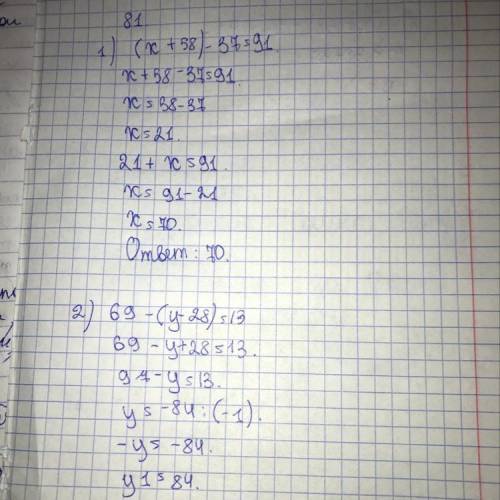 81
1) (x + 58) - 37 = 91.
x + 58 - 37 = 91.
x = 58 - 37
x = 21.
21 + x = 91.
x = 91 - 21
x = 70.
Ответ: 70.
2) 69 - (y - 28) = 13
69 - y + 28 = 13.
97 - y = 13.
y = -84 : (-1).
-y = -84.
y 1 = 84.